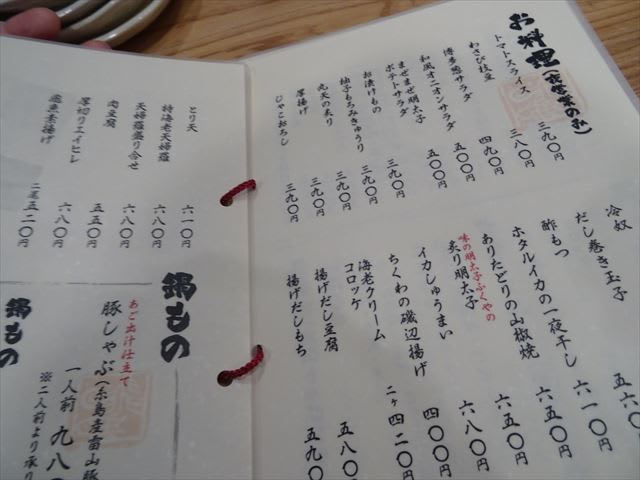 お料理(夜営業のみ)
トマトスライス 三九〇円
わさび枝豆 三八〇円
博多葱サラダ 四九〇円
和風オニオンサラダ 五〇〇円
まぜまぜ明太子
ポテトサラダ 五〇〇円
お漬けもの 三九〇円
柚子もろみきゅうり 三九〇円
丸天の炙り 三九〇円
厚揚げ 三九〇円
じゃこおろし 三九〇円
冷奴
だし巻き玉子 五六〇
酢もつ 六一〇円
ホタルイカの一夜干し 六五〇円
ありたどりの山椒焼 六五〇円
味の明太子ふくやの
炙り明太子 六八〇円
イカしゅうまい 四〇〇円
ちくわの磯辺揚げ 二ヶ 四二〇円
海老クリーム
コロッケ
揚げだし豆腐 五八〇
揚げだしもち 五九〇
とり天 六一〇円
特海老天婦羅 六八〇円
天婦羅盛り合せ 六八〇円
肉豆腐 五五〇円
厚切りエイヒレ 六八〇円
素揚げ 二尾 五二〇円
鍋もの
あご出汁仕立て
豚しゃぶ(糸島産雷山豚
一人前 九八〇
※二人前より承り
鍋もの